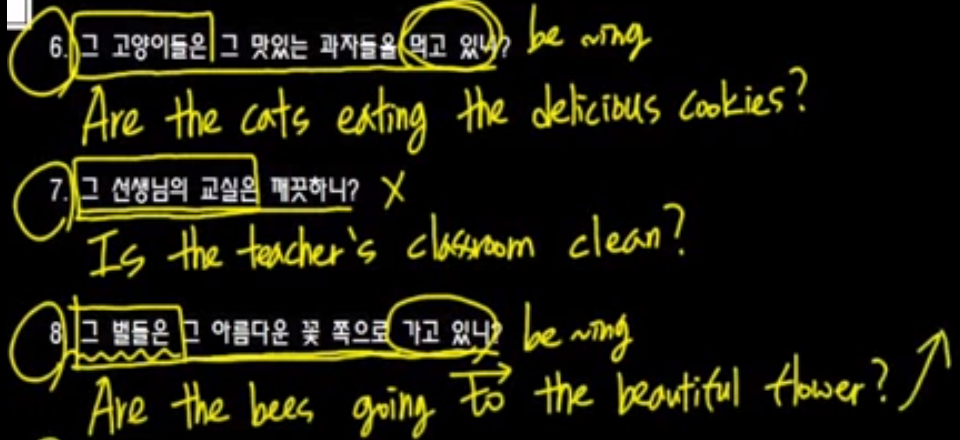 6. 그 고양이들은 그 맛있는 과자들을 먹고 있니? be ~ing
Are the cats eating the delicious cookies?
7. 그 선생님의 교실은 깨끗하니? X
Is the teacher's classroom clean?
8. 그 벌들은 그 아름다운 꽃 쪽으로 가고 있니? be ~ing
Are the bees going to the beautiful flower?